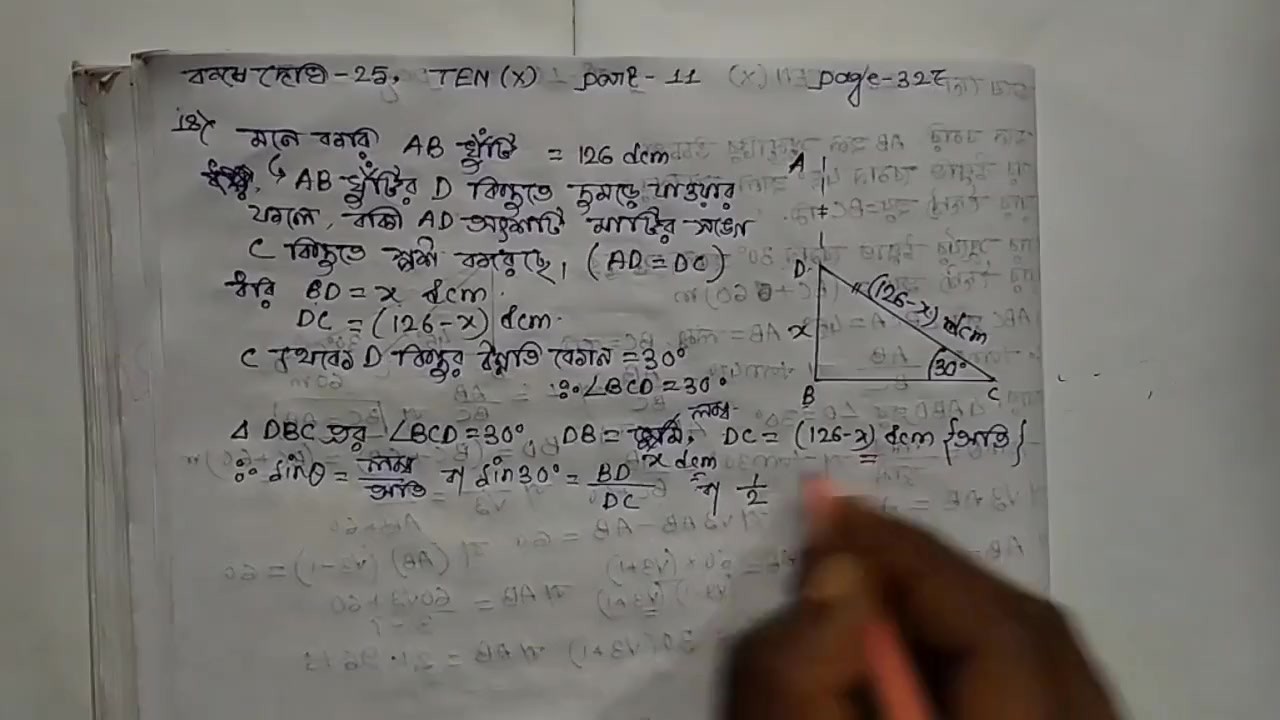 কষে দেখি - 25, TEN (X) Part - 11 Page - 327
18) মনে করি AB খুঁটি = 126 dcm
AB খুঁটির D বিন্দুতে দুমড়ে যাওয়ার
ফলে, বাকী AD অংশটি মাটির সঙ্গে
C বিন্দুতে স্পর্শ করেছে, (AD = DC)
ধরি BD = x dcm.
DC = (126 - x) dcm.
C থেকে D বিন্দুর উন্নতি কোণ = 30°
∴ ∠BCD = 30°
Δ DBC এর ∠BCD = 30°, DB = লম্ব, DC = (126 - x) dcm {অতি}
x dcm
∴ sinθ = লম্ব/অতি বা sin30° = BD/DC বা 1/2
A
D
x
(126 - x) dcm
30°
B
C